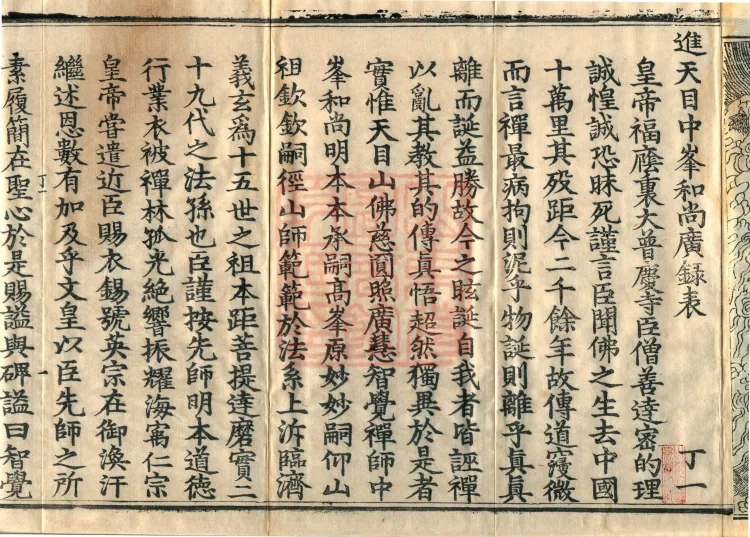 進天目中峯和尚廣録表
丁一
皇帝福廕裏大普慶寺臣僧善達密的理
誠惶誠恐昧死謹言臣聞佛之生去中國
十萬里其歿距今二千餘年故傳道寖微
而言禪最病拘則泥乎物誕則離乎眞眞
離而誕益勝故今之眩誕自我者皆誣禪
以亂其教其的傳眞悟超然獨異於是者
實惟天目山佛慈圓照廣慧智覺禪師中
峯和尚明本本承嗣高峯原妙妙嗣仰山
祖欽欽嗣徑山師範範於法系上泝臨濟
義玄爲十五世之祖本距菩提達磨實二
十九代之法孫也臣謹按先師明本道徳
行業衣被禪林孤光絶響振耀海㝢仁宗
皇帝甞遣近臣賜衣錫號英宗在御渙汗
繼述恩數有加及乎文皇以臣先師之所
丁一
一
素履簡在聖心於是賜謚與碑謚曰智覺